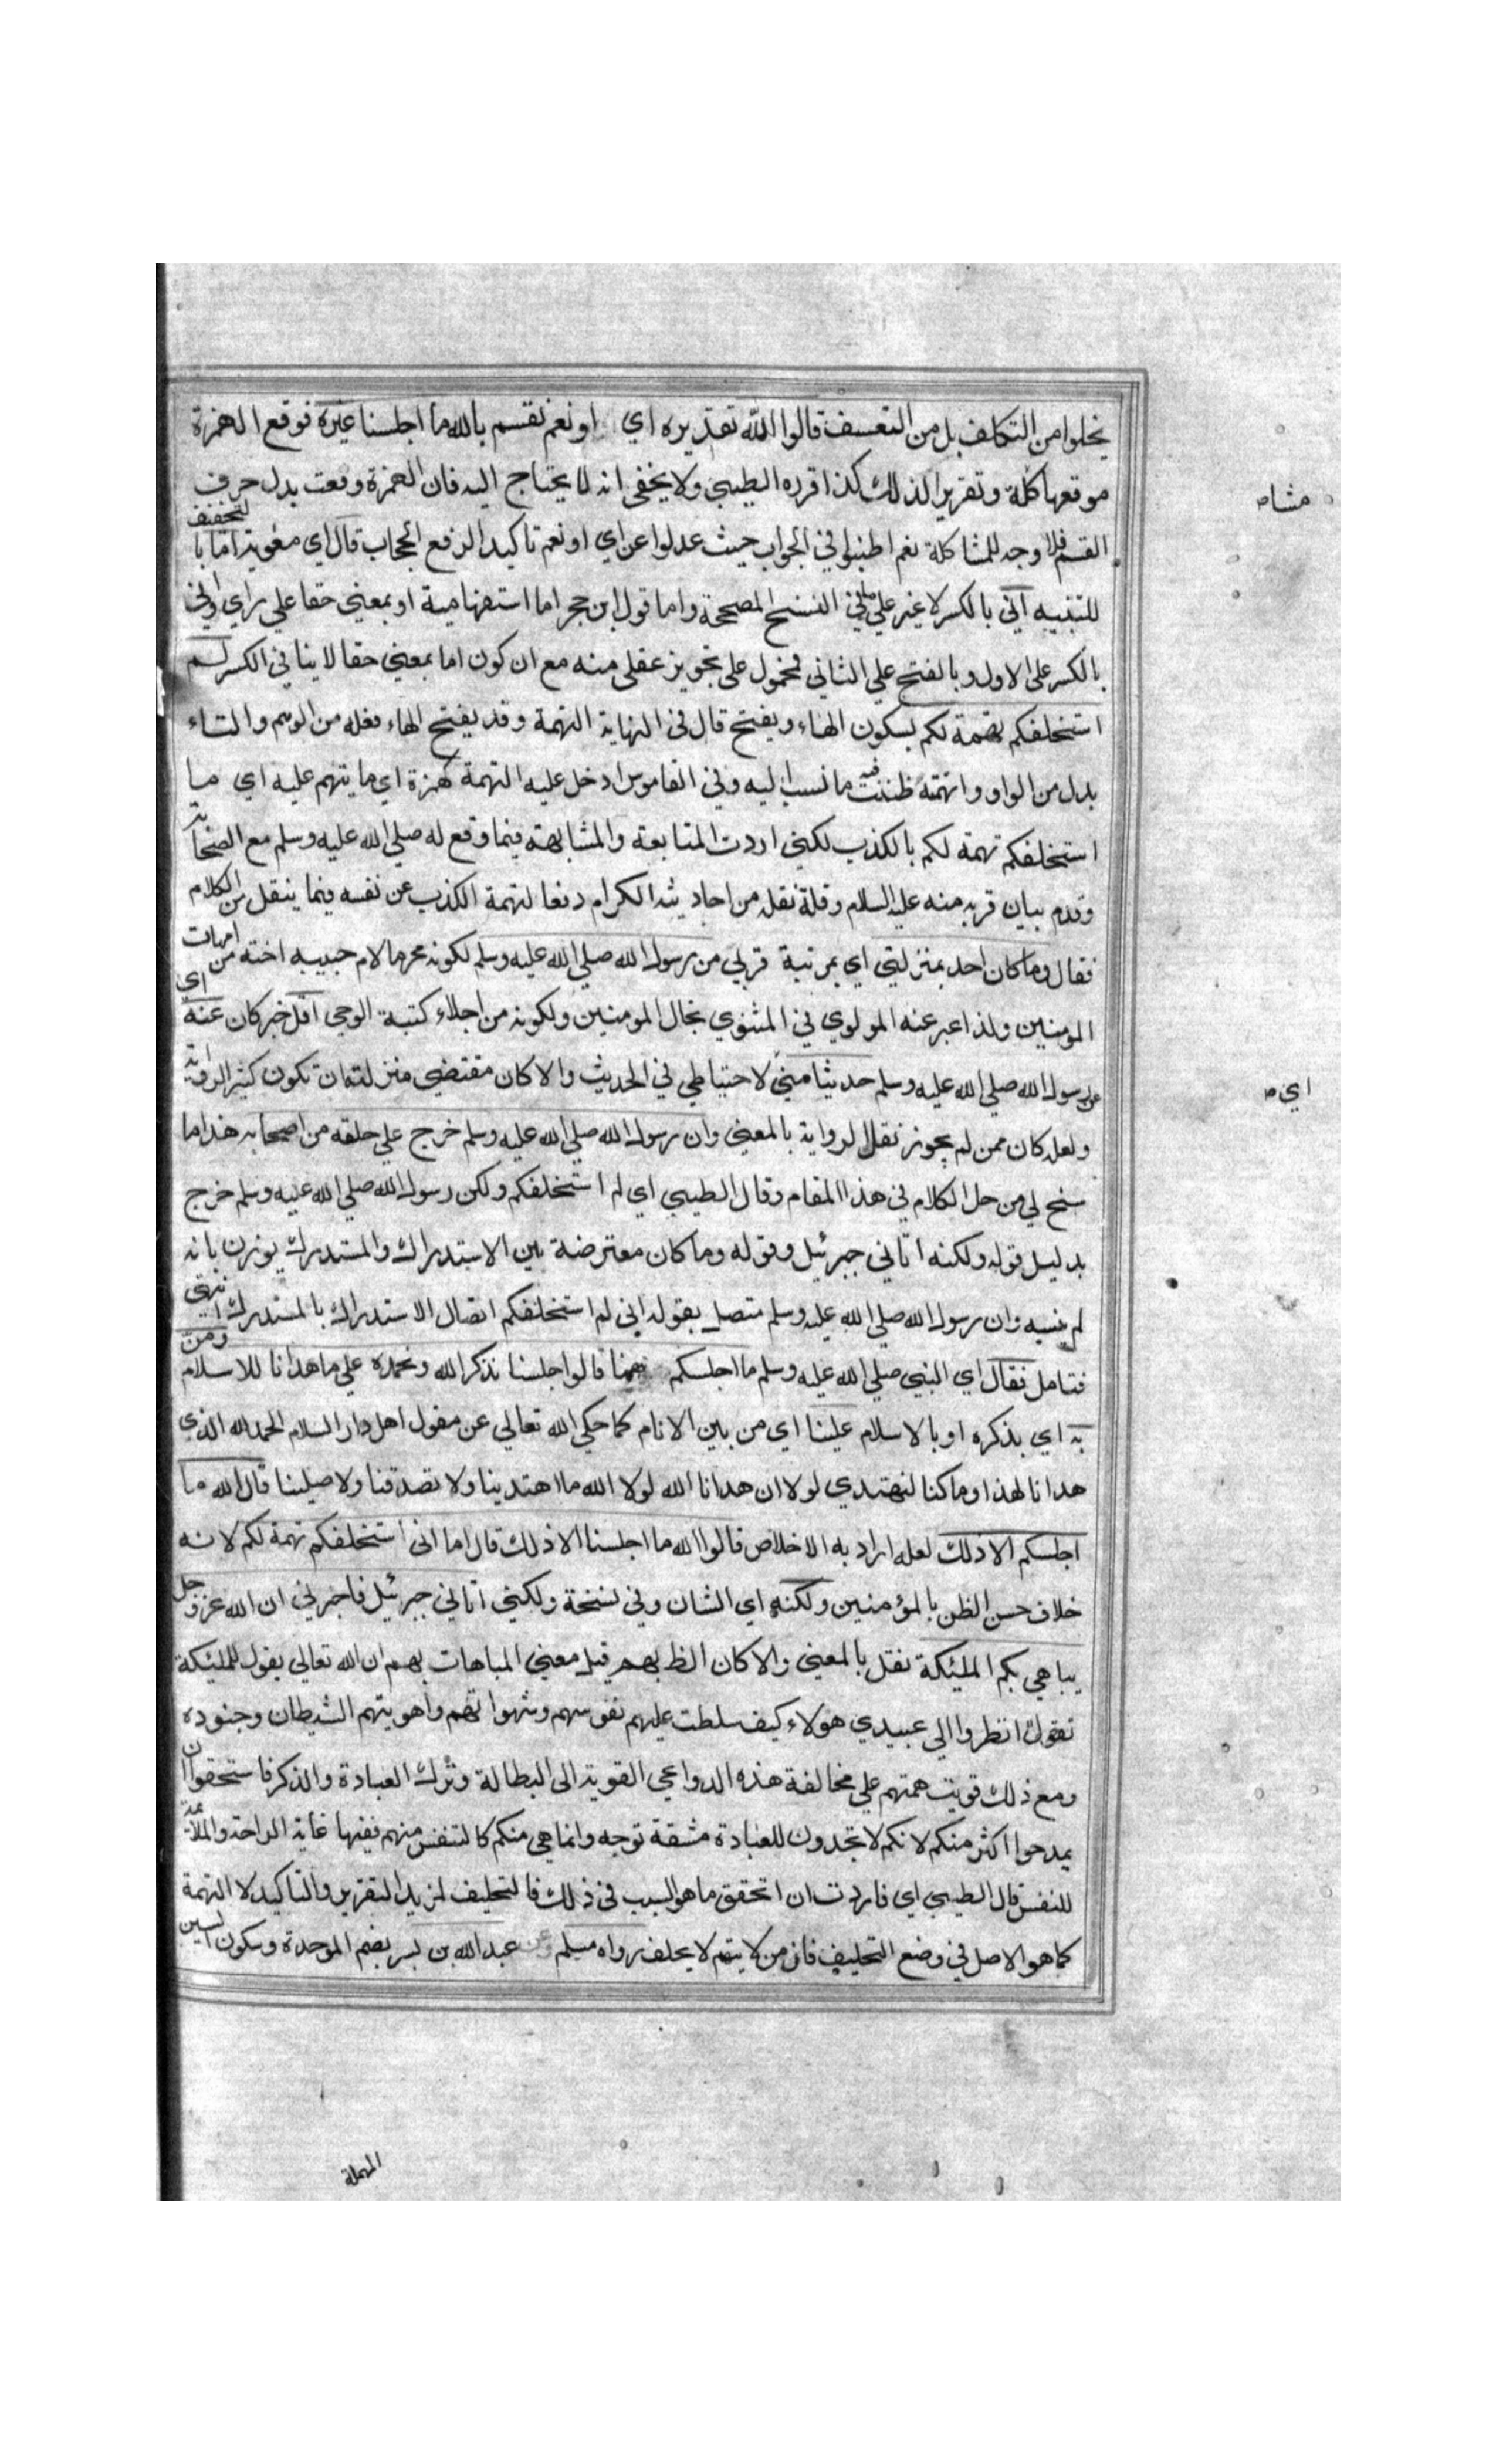 يخلوا من التكلف بل من التعسف قالوا آلله تقديره اي او نعم نقسم بالله ما اجلسنا غيره فوقع الهمزة
موقعها كلة وتقرير الذلك كذا قرره الطيبي ولا يخفى انه لا يحتاج اليه فان الهمزة وقعت بدل حرف
مشا
القسم فلا وجه للمشاكلة نعم اطنبوا في الجواب حيث عدلوا عن اي او نعم تاكيدا لرفع الحجاب قال اي معوية اما با لتخفيف
للتنبيه اني بالكسر لا غير على ما في النسخ المصححة واما قول ابن حجر اما استفهامية او بمعنى حقا على راي واني
بالكسر على الاول وبالفتح على الثاني فمحمول على تجويز عقلي منه مع ان كون اما بمعنى حقا لا ينافي الكسر لم
استحلفكم تهمة لكم بسكون الهاء ويفتح قال في النهاية التهمة وقد يفتح الهاء فعلة من الوهم والتاء
بدل من الواو واتهمته ظننت فيه ما نسب اليه وفي القاموس ادخل عليه التهمة كهمزة اي ما يتهم عليه اي ما
استحلفكم تهمة لكم بالكذب لكني اردت المتابعة والمشابهة فيما وقع له صلى الله عليه وسلم مع الصحابة
وقدم بيان قربه منه عليه السلام وقلة نقله من احاديثه الكرام دفعا لتهمة الكذب عن نفسه فيما ينقل من الكلام
فقال وما كان احد بمنزلتي اي بمرتبة قربي من رسول الله صلى الله عليه وسلم لكونه محرما لام حبيبه اخته من امهات
المومنين ولذا عبر عنه المولوي في المثنوي بخال المومنين ولكونه من اجلاء كتبة الوحي اقل خبر كان عنه اي
عن رسول الله صلى الله عليه وسلم حديثا مني لاحتياطي في الحديث والا كان مقتضى منزلته ان تكون كثير الرواية
اي
ولعله كان ممن لم يجوز نقل الرواية بالمعنى وان رسول الله صلى الله عليه وسلم خرج على حلقه من اصحابه هذا ما
سنح لي من حل الكلام في هذا المقام وقال الطيبي اي لم استحلفكم ولكن رسول الله صلى الله عليه وسلم خرج
بدليل قوله ولكنه اتاني جبرئيل وقوله وما كان معترضة بين الاستدراك والمستدرك يوذن بانه
لم ينسه وان رسول الله صلى الله عليه وسلم متصل بقوله اني لم استحلفكم اتصال الاستدراك بالمستدرك انتهى
فتامل فقال اي النبي صلى الله عليه وسلم ما اجلسكم ههنا قالوا جلسنا نذكر الله ونحمده على ما هدانا للاسلام ومن
به اي بذكره او بالاسلام علينا اي من بين الانام كما حكى الله تعالى عن مقول اهل دار السلام الحمد لله الذي
هدانا لهذا وما كنا لنهتدي لولا ان هدانا الله لولا الله ما اهتدينا ولا تصدقنا ولا صلينا قال آلله ما
اجلسكم الا ذلك لعله اراد به الاخلاص قالوا آلله ما اجلسنا الا ذلك قال اما اني استحلفكم تهمة لكم لانه
خلاف حسن الظن بالمؤمنين ولكنه اي الشان وفي نسخة ولكني اتاني جبرئيل فاخبرني ان الله عز وجل
يباهي بكم المليكة نقل بالمعنى والا كان الظ بهم قيل معنى المباهات بهم ان الله تعالى يقول للمليكة
تقول انظروا الى عبيدي هولاء كيف سلطت عليهم نفوسهم وشهواتهم واهويتهم الشيطان وجنوده
ومع ذلك قويت همتهم على مخالفة هذه الدواعي القوية الى البطالة وترك العبادة والذكر فاستحقوا ان
يمدحوا اكثر منكم لانكم لا تجدون للعبادة مشقة توجه وانما هي منكم كالتنفس منهم ففيها غاية الراحة والملائمة
للنفس قال الطيبي اي فاردت ان اتحقق ما هو السبب في ذلك فالتحليف لمزيد التقرير والتاكيد لا التهمة
كما هو الاصل في وضع التحليف فان من لا يتهم لا يحلف رواه مسلم وعن عبد الله بن بسر بضم الموحدة وسكون السين
المهملة